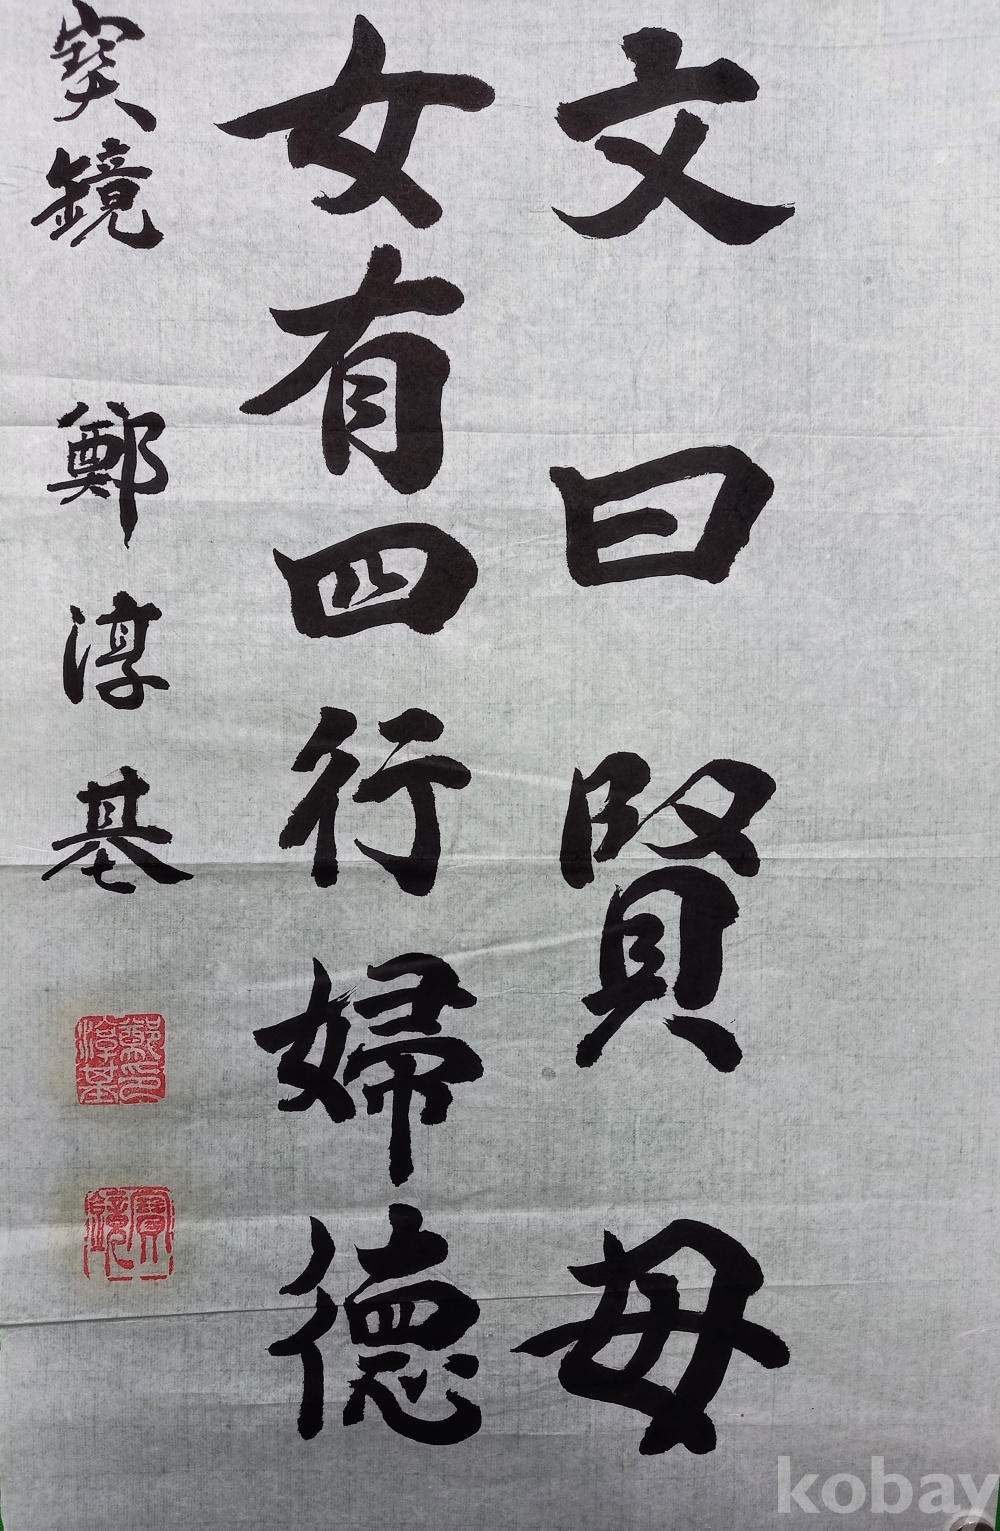 文曰賢母
女有四行婦德
寶鏡 鄭淳基
鄭淳基印
寶鏡
kobay